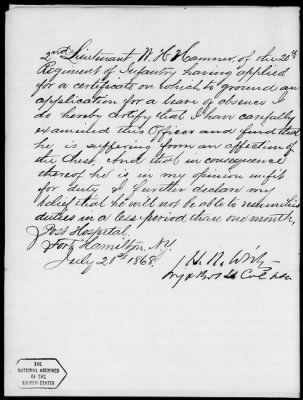 2nd Lieutenant W. H. Hamner, of the 20th
Regiment of Infantry having applied
for a certificate on which to ground an
application for a leave of absence I
do hereby certify that I have carefully
examined this Officer and find that
he is suffering from an affection of
the Chest, And that in consequence
thereof he is in my opinion unfit
for duty. I further declare my
belief that he will not be able to resume his
duties in a less period than one month,
Post Hospital
Fort Hamilton, N.Y.
July 21st 1868
THE
NATIONAL ARCHIVES
OF THE
UNITED STATES